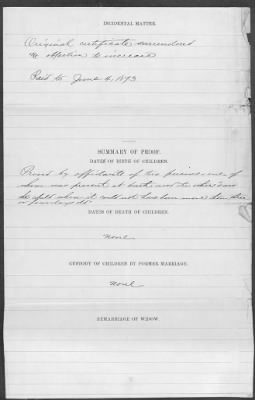 INCIDENTAL MATTER.
Original certificate surrendered
no objection to increase
Paid to June 4, 1893
SUMMARY OF PROOF.
DATES OF BIRTH OF CHILDREN.
Proved by affidavits of two persons one of
whom was present at birth and the other saw
the child when it could not have been more than three
or four days old
DATES OF DEATH OF CHILDREN.
None
CUSTODY OF CHILDREN BY FORMER MARRIAGE.
None
REMARRIAGE OF WIDOW.